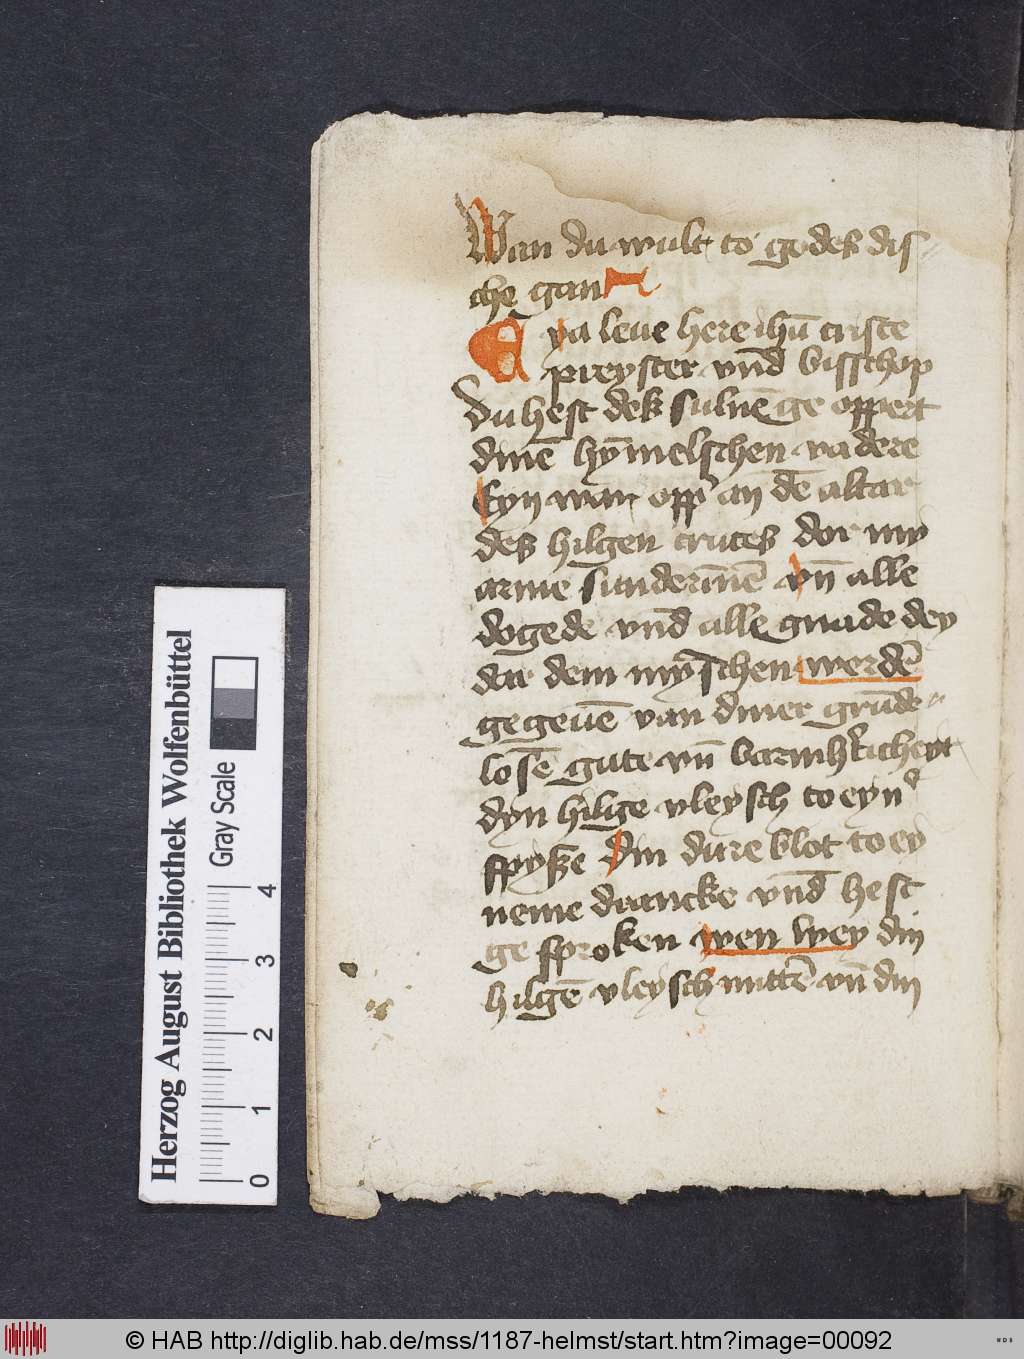 Wan du wult to godes dis
che gan
Eya leue here ihū criste
preyster vnd bisschop
du hest dek suluē ge oppert
dinē hȳmelschen vadere
Eyn war opp an dē altar
des hilgen cruces dor my
arme sunderinē vn̄ alle
dogede vnd alle gnade dey
dar dem mȳschen werdē
gegeuē van diner grūde
losē gute vn̄ barmhticheyt
dyn hilge vleysch to eyn
spyse din dure blot to ey
neme drancke vnd hest
ge sproken wen wey din
hilgē vleysch nuttē vn̄ din
Herzog August Bibliothek Wolfenbüttel
Gray Scale
0 1 2 3 4
© HAB http://diglib.hab.de/mss/1187-helmst/start.htm?image=00092
WDB